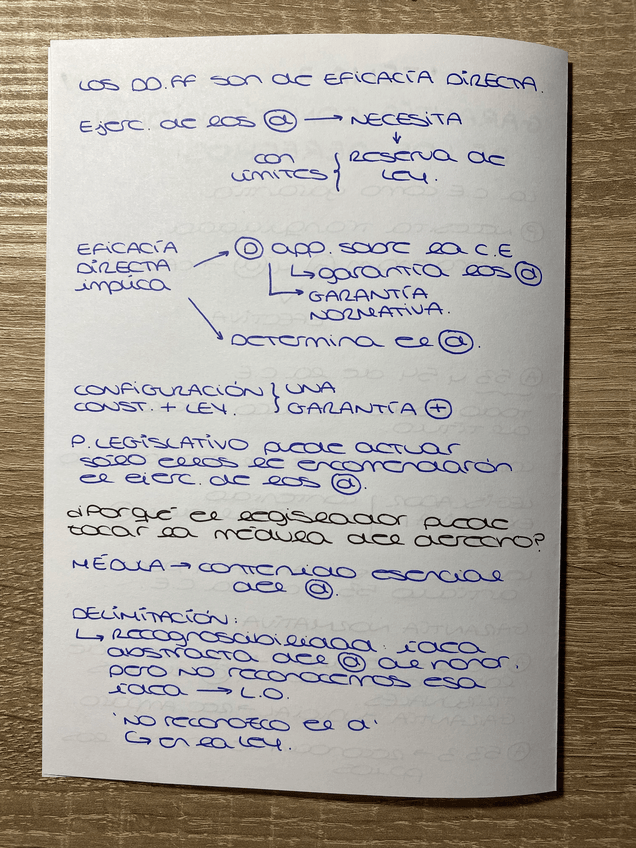 LOS DD.FF SON DE EFICACÍA DIRECTA.
Ejerc. de los ⓓ → NECESITA
↓
con LÍMITES } RESERVA DE LEY.
EFICACÍA DIRECTA implica
→ ⓞ app. sobre la C.E
↳ garantía los ⓓ
→ GARANTÍA NORMATIVA.
→ DETERMINA el ⓓ.
CONFIGURACIÓN } UNA
CONST. + LEY. } GARANTÍA ⊕
P. LEGISLATIVO puede actuar
sólo ellos le encomendarón
el ejerc. de los ⓓ.
¿Porqué el legislador puede
tocar la médula del derecho?
MÉDULA → contenido esencial
del ⓓ.
DELIMITACIÓN:
↳ Recognoscibilidad: idea
abstracta del ⓓ de honor.
pero no reconocemos esa
idea → L.O.
'NO RECONOZCO el d'
↳ en la LEY.